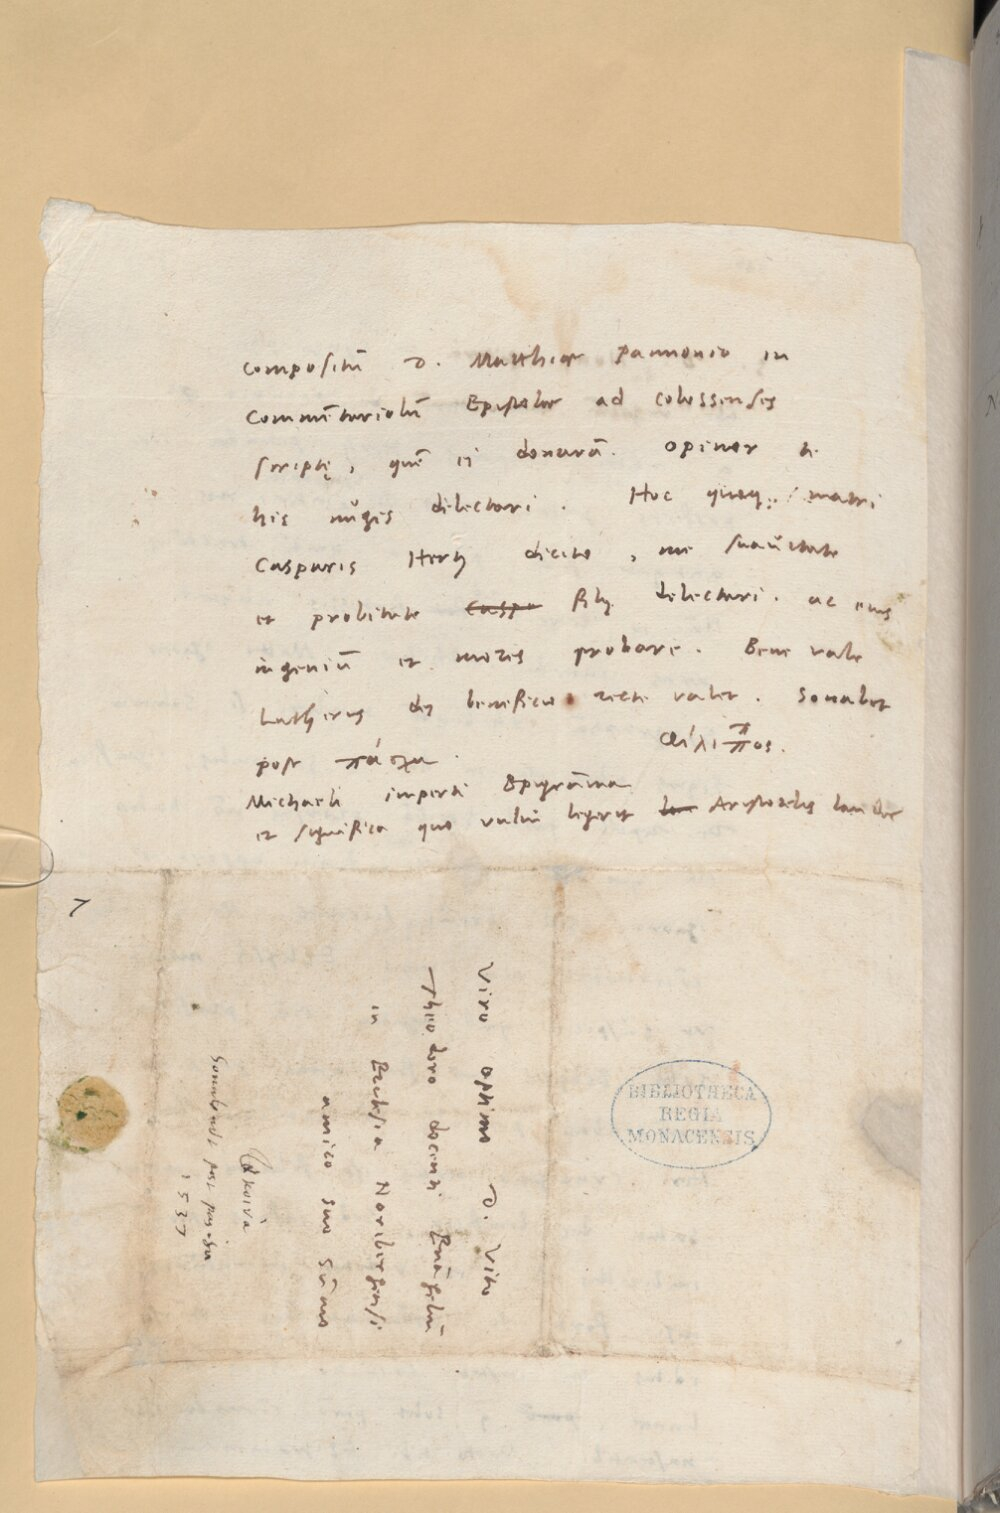 compositũ D. Matthiæ Pannonio in
Commẽtariolũ Epistolæ ad Colossenses
scriptę, quẽ ei donarã. Opinor te
his nugis delectari. Hoc quoq; matri
Casparis Hertz dicito, me suauitate
et probitate Caspa filij delectari. ac eius
ingeniũ et mores probare. Bene vale
Lutherus dei beneficio recte valet. Sonabit
post πάσχα. Φίλιππος.
Michaeli imperti Epigrãma
et significa quo vultu legerit Aristotelis laudẽ
7
Viro optimo D. Vito
Theodoro docenti Euãgeliũ
in Ecclesia Noribergensi
amico suo
post
1537
BIBLIOTHECA
REGIA
MONACENSIS